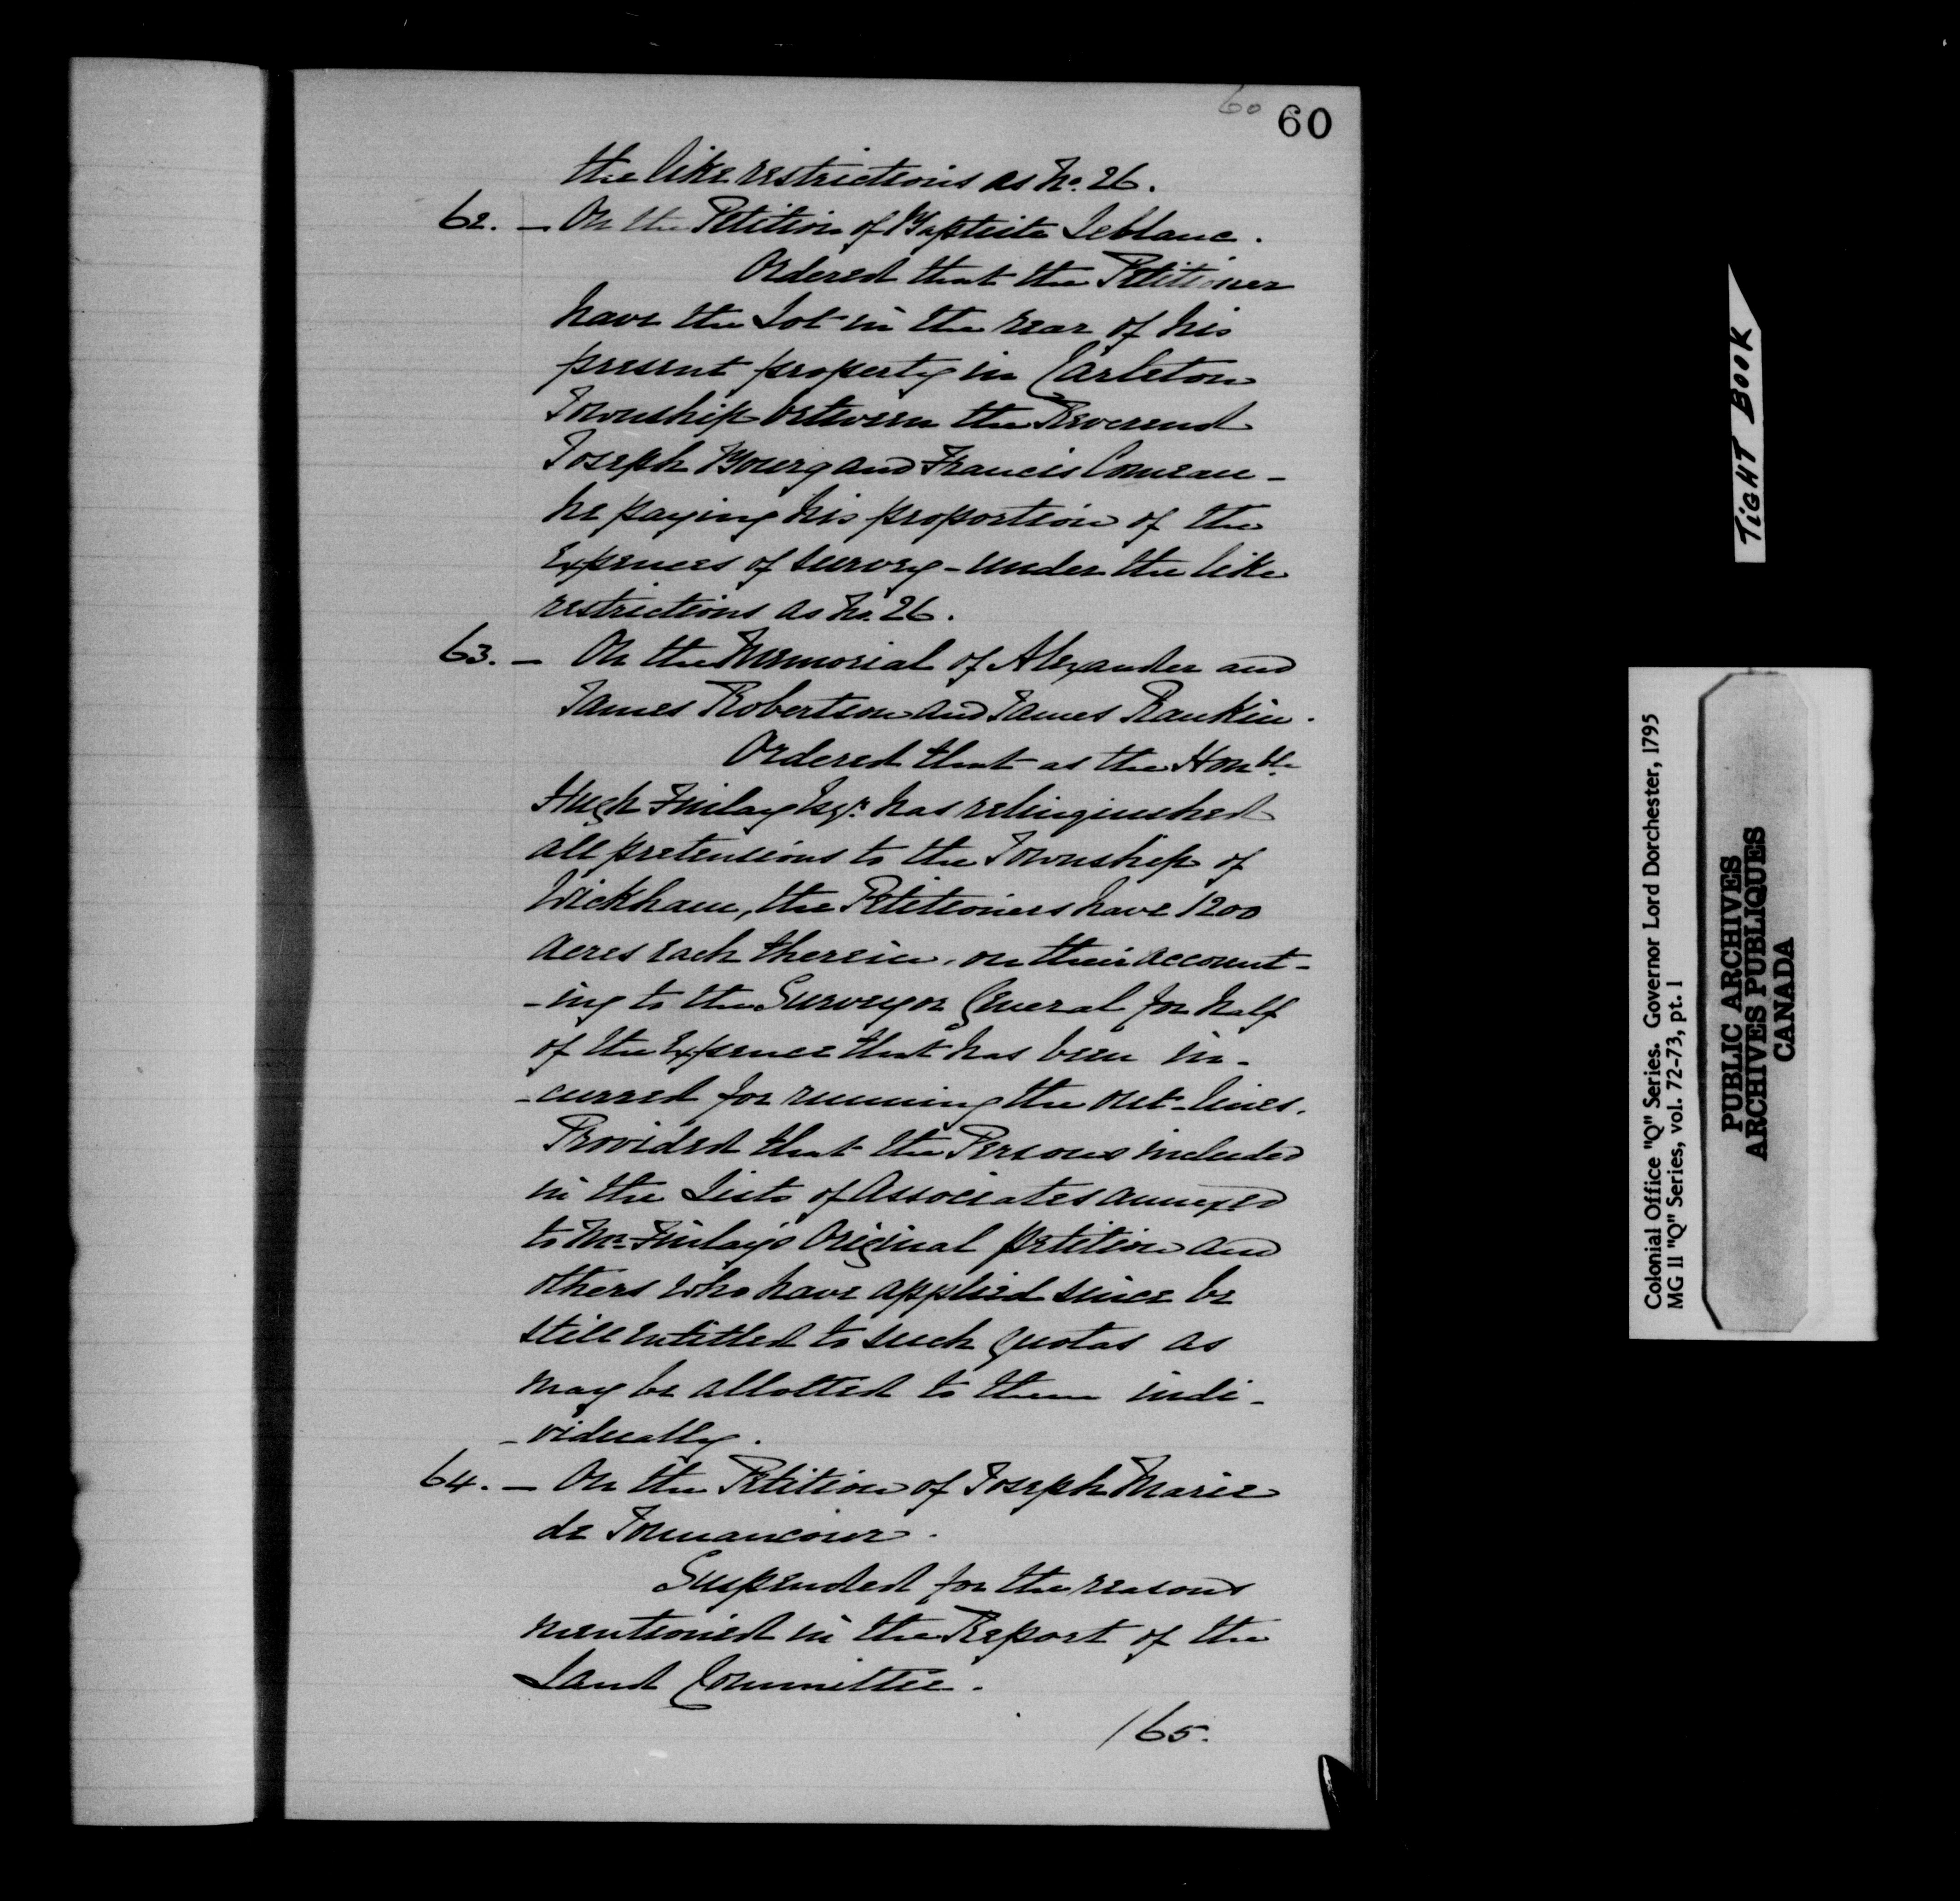 60 60
the like restrictions as No. 26.
62. - On the Petition of Baptiste Leblanc.
Ordered that the Petitioner
have the Lot in the rear of his
present property in Carleton
Township between the Reverend
Joseph Bourg and Francis Comeau -
he paying his proportion of the
Expences of survey - under the like
restrictions as No. 26.
63. - On the Memorial of Alexander and
James Robertson and James Rankin.
Ordered that as the Honble
Hugh Finlay Esqr. has relinquished
all pretensions to the Township of
Wickham, the Petitioners have 1200
acres each therein, on their account-
-ing to the Surveyor General for half
of the Expence that has been in-
-curred for running the out-lines.
Provided that the Persons included
in the Lists of Associates annexed
to Mr. Finlay's Original petition and
others who have applied since be
still entitled to such quotas as
may be allotted to them indi-
-vidually.
64. - On the Petition of Joseph Marie
de Tonnancour.
Suspended for the reasons
mentioned in the Report of the
Land Committee.
/65.
TIGHT BOOK
Colonial Office "Q" Series. Governor Lord Dorchester, 1795
MG 11 "Q" Series, vol. 72-73, pt. 1
PUBLIC ARCHIVES
ARCHIVES PUBLIQUES
CANADA